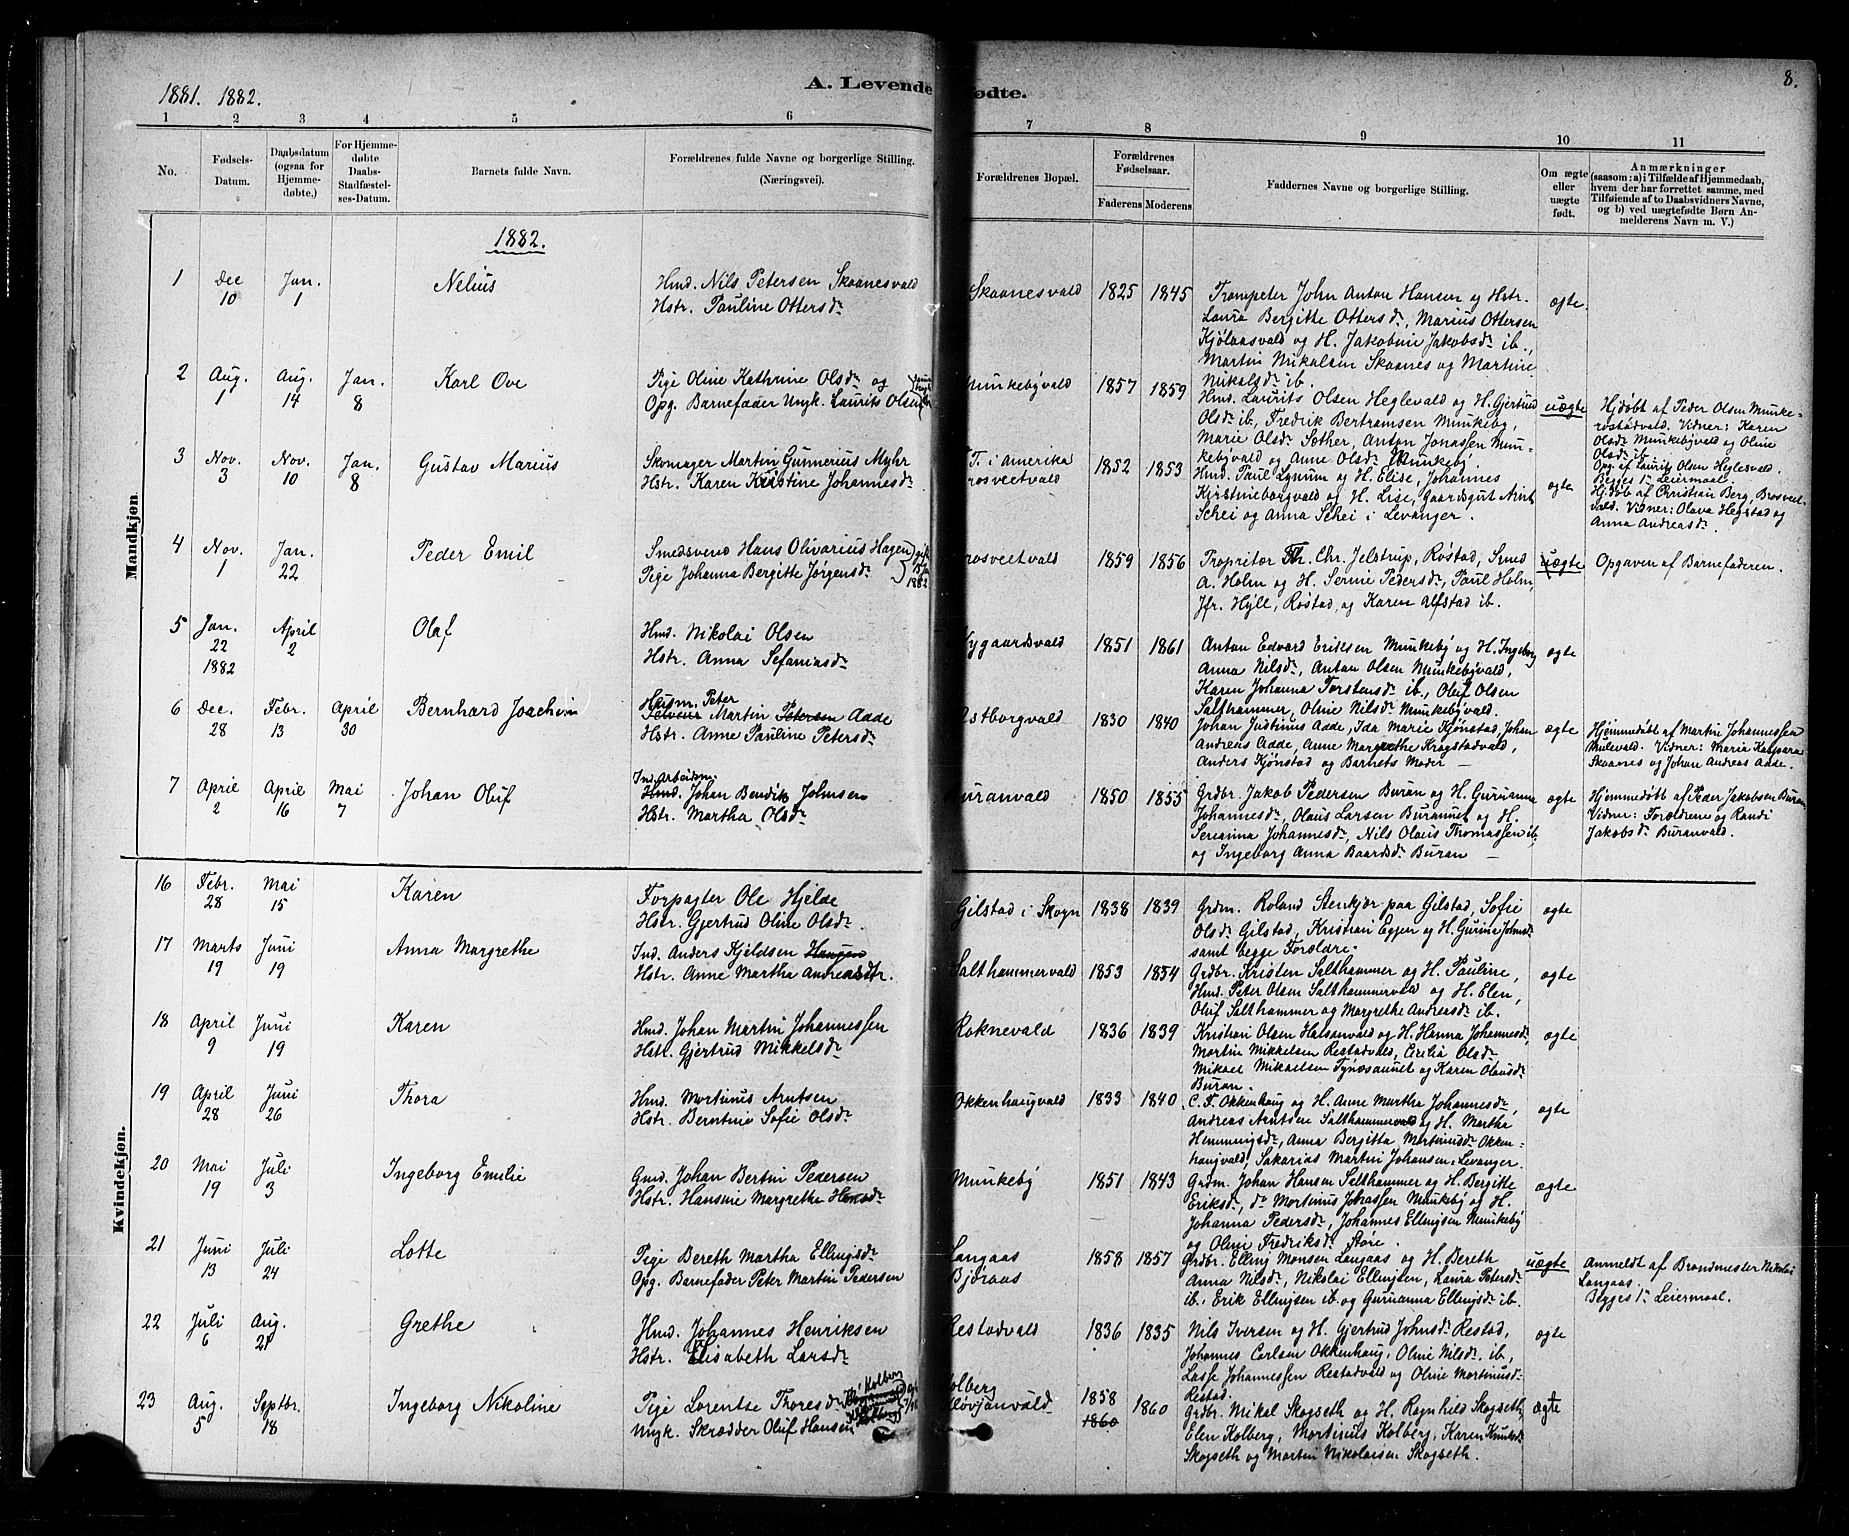 1881. 1882.
A. Levende fødte.
8.
1 2 3 4 5 6 7 8 9 10 11
No.
Fødsels-Datum.
Daabsdatum (ogsaa for Hjemmedøbte.)
For Hjemmedøbte Daabs-Stadfæstelses-Datum.
Barnets fulde Navn.
Forældrenes fulde Navne og borgerlige Stilling. (Næringsvei).
Forældrenes Bopæl.
Forældrenes Fødselsaar.
Faderens Moderens
Faddernes Navne og borgerlige Stilling.
Om ægte eller uægte født.
Anmærkninger
(saasom: a) i Tilfælde af Hjemmedaab,
hvem der har forrettet samme, med
Tilføiende af to Daabsvidners Navne,
og b) ved uægtefødte Børn An-
melderens Navn m. V.)
Mandkjøn.
1882.
1 Dec 10 Jan. 1 Nelius
Hmd. Nils Petersen Skaanesvald
Hstr. Pauline Ottersdr
Skaanesvald 1825 1845
Trompeter John Anton Hansen og Hstr.
Laura Bergitte Ottersdr, Marius Ottersen
Kjølaasvald og H. Jakobine Jakobsdr ib.,
Martin Mikalsen Skaanes og Martine
Nikalsdr ib.
ægte
2 Aug. 1 Aug. 14 Jan. 8 Karl Ove
Pige Oline Kathrine Olsdr og
Opg. Barnefader Ungk. Laurits Olsen
Munkebyvald 1857 1859
Hmd. Laurits Olsen Heglevald og H. Gjertrud
Olsdr ib., Fredrik Bertramsen Munkeby,
Marie Olsdr Sother, Anton Jonassen Mun-
kebyvald og Anne Olsdr Munkeby.
uægte
Hjdøbt af Peder Olsen Munke-
rostadvald. Vidner: Karen
Olsdr Munkebyvald og Oline
Olsdr ib.
Opg. af Laurits Olsen Heglesvald.
Begges 1ste Leiermaal.
3 Nov. 3 Nov. 10 Jan. 8 Gustav Marius
Skomager Martin Gunnerius Myhr
Hstr. Karen Kristine Johannesdr
F. T. i Amerika
rosveetvald 1852 1853
Hmd. Paul Lynum og H. Elise, Johannes
Kirstineborgvald og H. Lise, Gaardsgut Arnt
Schei og Anna Schei i Levanger.
ægte
Hjdøb af Christian Berg Brosveet-
vald. Vidner: Olava Hegstad og
Anna Andreasdr.
4 Nov. 1 Jan. 22 Peder Emil
Smedsvend Hans Olivarius Hagen
Pige Johanna Bergitte Jørgensdr
1882
rosveetvald 1859 1856
Propritær Th. Chr. Jelstrup, Røstad, Smed
A. Holm og H. Serine Pedersdr, Paul Holm,
Jfr. Hyll, Røstad, og Karen Ulfstad ib.
uægte
Opgaven af Barnefaderen.
5 Jan. 22 1882 April 2 Olaf
Hmd. Nikolai Olsen
Hstr. Anna Sefaniasdr
Nygaardsvald 1851 1861
Anton Edvard Eriksen Munkeby og H. Ingeborg
Anna Nilsdr, Anton Olsen Munkebyvald,
Karen Johanna Torstensdr ib., Oluf Olsen
Salthammer, Oline Nilsdr Munkebyvald.
ægte
6 Dec. 28 Febr. 13 April 30 Bernhard Joachim
Husm. Peter
Martin Petersen Adde
Hstr. Anne Pauline Petersdr
stborgvald 1830 1840
Johan Justinus Adde, Ida Marie Kjønstad, Johan
Andreas Adde, Anne Margrethe Kragstadvald,
Anders Kjønstad og Barnets Moder —
ægte
Hjemmedøbt af Martin Johannessen
Mulevald. Vidner: Maria Kaspara
Skaanes og Johan Andreas Adde.
7 April 2 April 16 Mai 7 Johan Oluf
Ind. Arbeidsm.
Hmd. Johan Bendik Johnsen
Hstr. Martha Olsdr
Buranvald 1850 1855
Grdbr. Jakob Pedersen Buran og H. Gurianna
Johannesdr, Olaus Larsen Buranvet og H.
Serianna Johannesdr, Nils Olaus Thomassen ib.
og Ingeborg Anna Baardsdr Buran —
ægte
Hjemmedøbt af Peder Jakobsen Buran
Vidner: Forældrene og Randi
Jakobsdr Buranvald.
Kvindekjøn.
16 Febr. 28 Mai 15 Karen
Forpagter Ole Hjelde
Hstr. Gjertrud Oline Olsdr
Gilstad i Skogn 1838 1839
Grdm. Roland Stenkjær paa Gilstad, Sofie
Olsdr Gilstad, Kristian Eggen og H. Gurine Johnsdr
samt begge Forældre.
ægte
17 Marts 19 Juni 19 Anna Margrethe
Ind. Anders Kjeldsen Haugen
Hstr. Anne Martha Andreasdtr.
Salthammervald 1853 1854
Grdbr. Kristen Salthammer og H. Pauline,
Hmd. Peter Olsen Salthammervald og H. Elen,
Oluf Salthammer og Margrethe Andreasdr ib.
ægte
18 April 9 Juni 19 Karen
Hmd. Johan Martin Johannessen
Hstr. Gjertrud Mikkelsdr
Roknevald 1836 1839
Kristian Olsen Halsanvald og H. Hanna Johannesdr,
Martin Mikkelsen Restadvald, Cecilia Olsdr
Mikael Mikaelsen Tynæsaunet og Karen Olausdr
Buran.
ægte
19 April 28 Juni 26 Thora
Hmd. Mortinus Arntsen
Hstr. Berntine Sofie Olsdr
Okkenhaugvald 1833 1840
C. F. Okkenhaug og H. Anne Martha Johannesdr,
Andreas Arntsen Salthammervald og H. Martha
Hemmingsdr, Anna Bergitta Mortinusdr Okken-
haugvald, Sakarias Martin Johansen i Levanger.
ægte
20 Mai 19 Juli 3 Ingeborg Emilie
Gmd. Johan Bertin Pedersen
Hstr. Hansine Margrethe Hansdr
Munkeby 1851 1843
Grdm. Johan Hansen Salthammer og H. Bergitte
Eriksdr, dr Mortinus Jonassen Munkeby og H.
Johanna Pedersdr, Johannes Ellingsen Munkeby
og Oline Fredriksdr Støre.
ægte
21 Juni 13 Juli 24 Lotte
Pige Bereth Martha Ellingsdr
Opg. Barnefader Peter Martin Pedersen
Langaas
Bjøraas 1858 1857
Grdbr. Elling Monsen Langaas og H. Bereth
Anna Nilsdr, Nikolai Ellingsen, Laura Petersdr
ib., Erik Ellingsen ib. og Gurianna Ellingsdr ib.
uægte
Anmeldt af Brandmester Nikolai
Langaas.
Begges 1ste Leiermaal.
22 Juli 6 Aug. 21 Grethe
Hmd. Johannes Henriksen
Hstr. Elisabeth Larsdr
Restadvald 1836 1835
Nils Iversen og H. Gjertrud Johnsdr Restad,
Johannes Carlsen Okkenhaug, Oline Nilsdr. ib.,
Lasse Johannessen Restadvald og Oline Mortinusdr
Restad.
ægte
23 Aug. 5 Septbr. 18 Ingeborg Nikoline
Pige Lorentse Thoresdr
Ungk. Skrædder Oluf Hansen
Kolberg
Kolberg
Kløvjanvald 1858 1860 1860
Grdbr. Mikal Skogseth og H. Ragnhild Skogseth,
Elen Kolberg, Mortinus Kolberg, Karen Knutsdr
Skogseth og Martin Nikolaisen Skogseth.
ægte